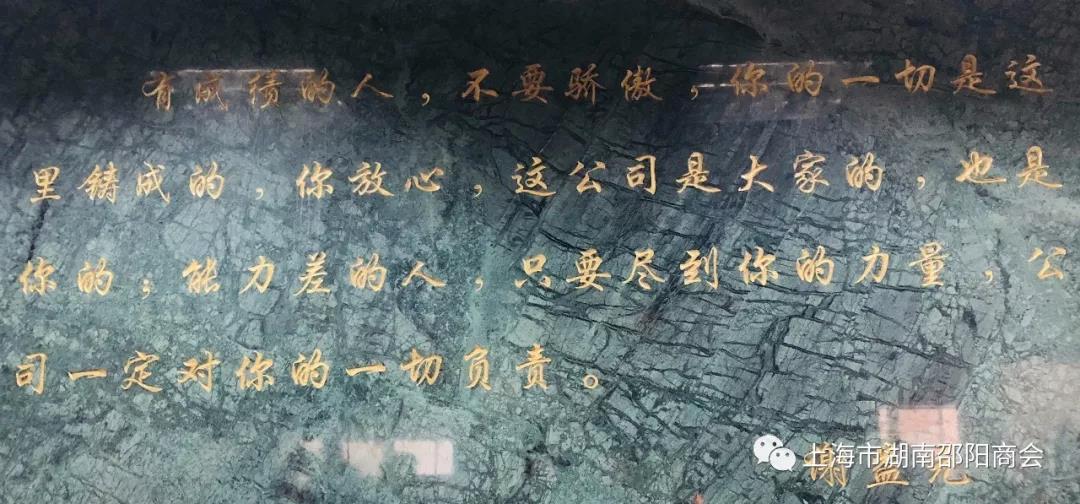 有成绩的人，不要骄傲，你的一切是这
里铸成的，你放心，这公司是大家的，也是
你的；能力差的人，只要尽到你的力量，公
司一定对你的一切负责。
上海市湖南邵阳商会